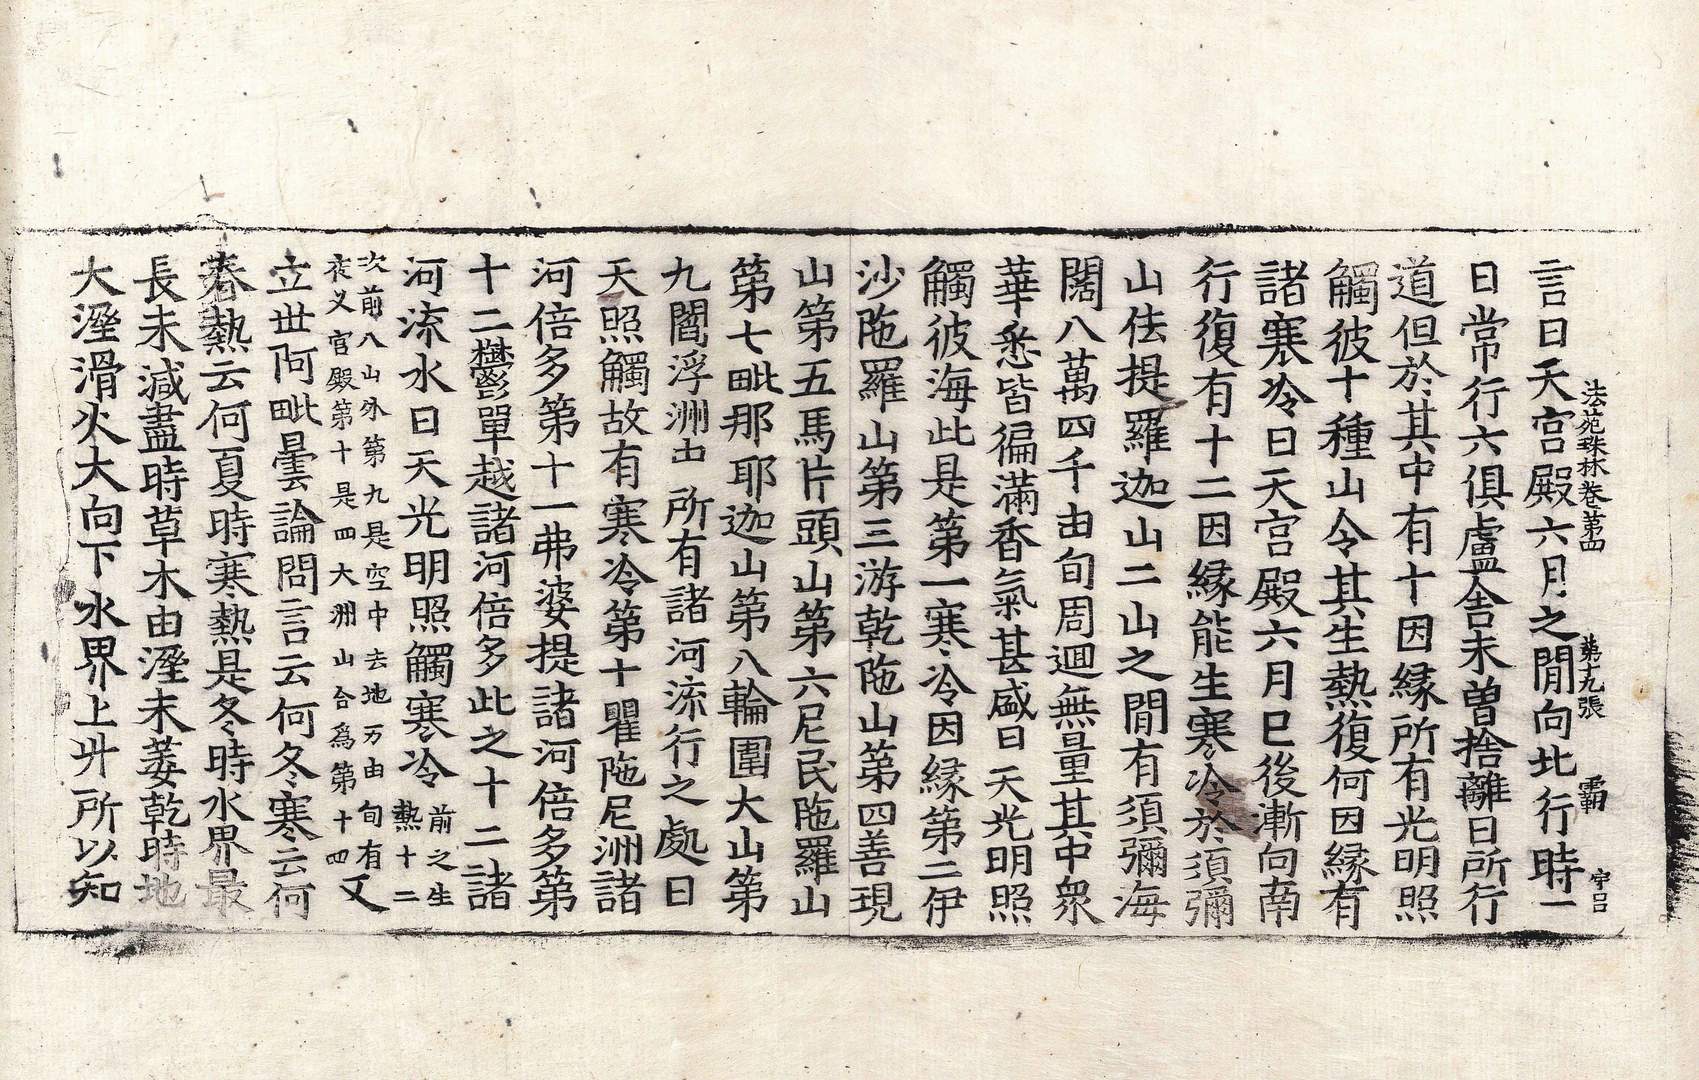 法苑珠林卷第四 第十九張 霸 宇吕
言日天宮殿六月之閒向北行時一
日常行六俱盧舍未曽捨離日所行
道但於其中有十因縁所有光明照
觸彼十種山令其生熱復何因縁有
諸寒冷日天宮殿六月已後漸向南
行復有十二因縁能生寒冷於須彌
山佉提羅迦山二山之閒有須彌海
闊八萬四千由旬周迴無量其中衆
華悉皆徧滿香氣甚盛日天光明照
觸彼海此是第一寒冷因縁第二伊
沙陁羅山第三游乾陁山第四善現
山第五馬片頭山第六尼民陁羅山
第七毗那耶迦山第八輪圍大山第
九閻浮洲出所有諸河流行之處日
天照觸故有寒冷第十瞿陁尼洲諸
河倍多第十一弗婆提諸河倍多第
十二鬱單越諸河倍多此之十二諸
河流水日天光明照觸寒冷前之生熱十二
次前八山外第九是空中去地万由旬有
夜叉宮殿第十是四大洲山合爲第十四又
立世阿毗曇論問言云何冬寒云何
春熱云何夏時寒熱是冬時水界最
長未減盡時草木由溼未萎乾時地
大溼滑火大向下水界上升所以知